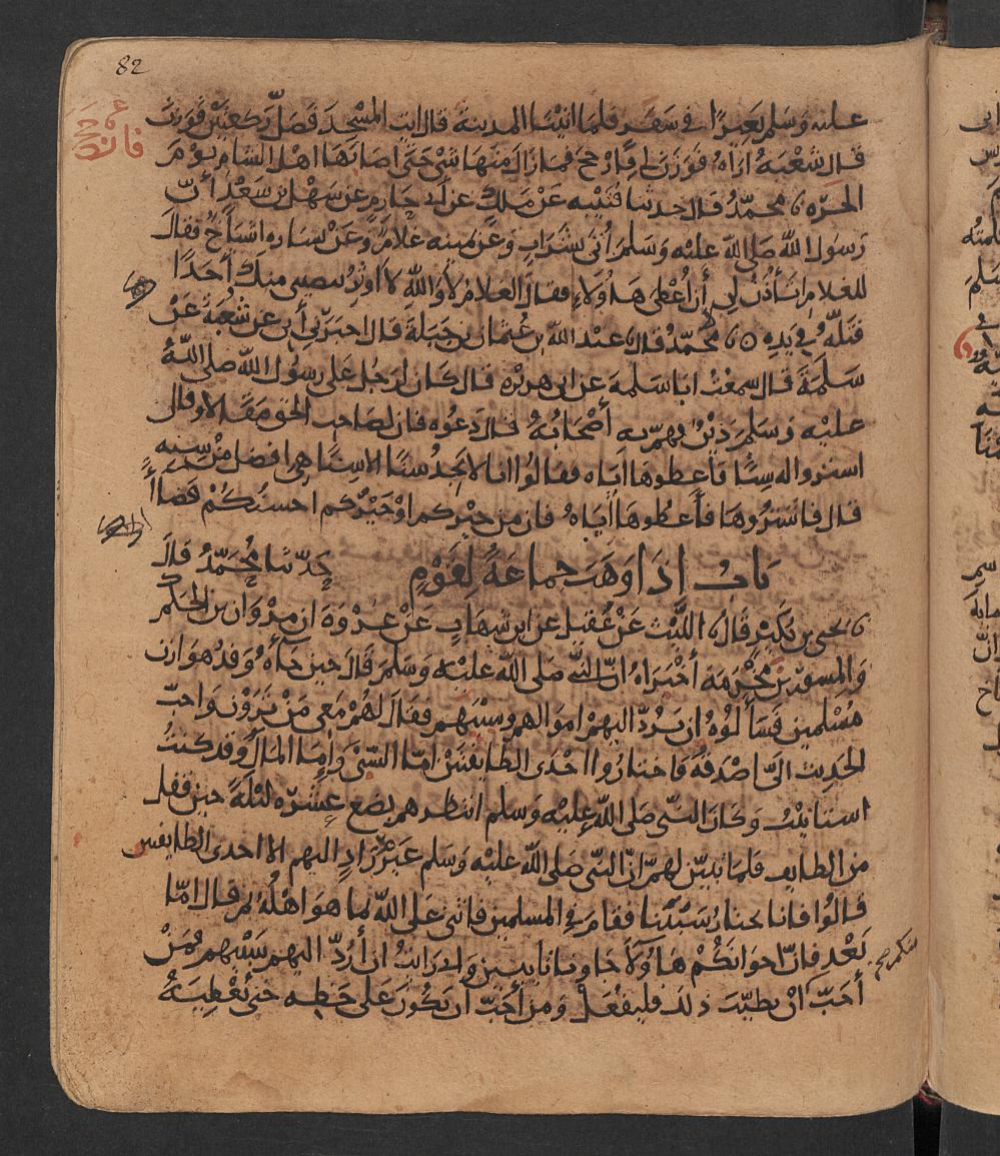 82
عليه وسلم بعيرا في سفر فلما اتينا المدينة قال ايت المسجد فصل ركعتين فوزن
قال شعبة اراه فوزن لي فارجح فما زال منها شي حتى اصابها اهل الشام يوم
الحره محمد قال حدثنا قتيبه عن ملك عن ابي حازم عن سهل بن سعد أن
رسول الله صلى الله عليه وسلم أتى بشراب وعن يمينه غلام وعن يساره اشياخ فقال
للغلام اتأذن لي أن أعطى هاولاء فقال الغلام لا والله لا اوثر بنصيبي منك أحدا
فتله في يده محمد قال عبد الله بن عثمان بن جبلة قال اخبرني أبي عن شعبة عن
سلمة قال سمعت ابا سلمة عن ابي هريره قال كان لرجل على رسول الله صلى الله
عليه وسلم دين فهم به أصحابه قال دعوه فان لصاحب الحق مقالا وقال
اشتروا له سنا فأعطوها اياه فقالوا انا لا نجد سنا الا سنا هي افضل من سنه
قال فاشتروها فأعطوها اياه فان من خيركم او خيركم احسنكم قضاأ
باب اذا وهب جماعة لقوم حدثنا محمد قال
يحيى بن بكير قال الليث عن عقيل عن ابن شهاب عن عروه ان مروان بن الحكم
والمسور بن مخرمه أخبراه ان النبي صلى الله عليه وسلم قال حين جاه وفد هوازن
مسلمين فسألوه ان يرد اليهم اموالهم وسبيهم فقال لهم معي من ترون واحب
الحديث الي اصدقه فاختاروا احدى الطايفتين اما السبي وإما المال وقد كنت
استانيت وكان النبي صلى الله عليه وسلم انتظرهم بضع عشره ليلة حين قفل
من الطايف فلما تبين لهم ان النبي صلى الله عليه وسلم غير راد اليهم الا احدى الطايفتين
قالوا فانا نختار سبينا فقام في المسلمين فاثنى على الله بما هو اهله ثم قال اما
بعد فان اخوانكم هاولا جاونا تايبين واني رايت ان أرد اليهم سبيهم فمن
أحب ان يطيب ذلك فليفعل ومن أحب ان يكون على حظه حتى نعطيه